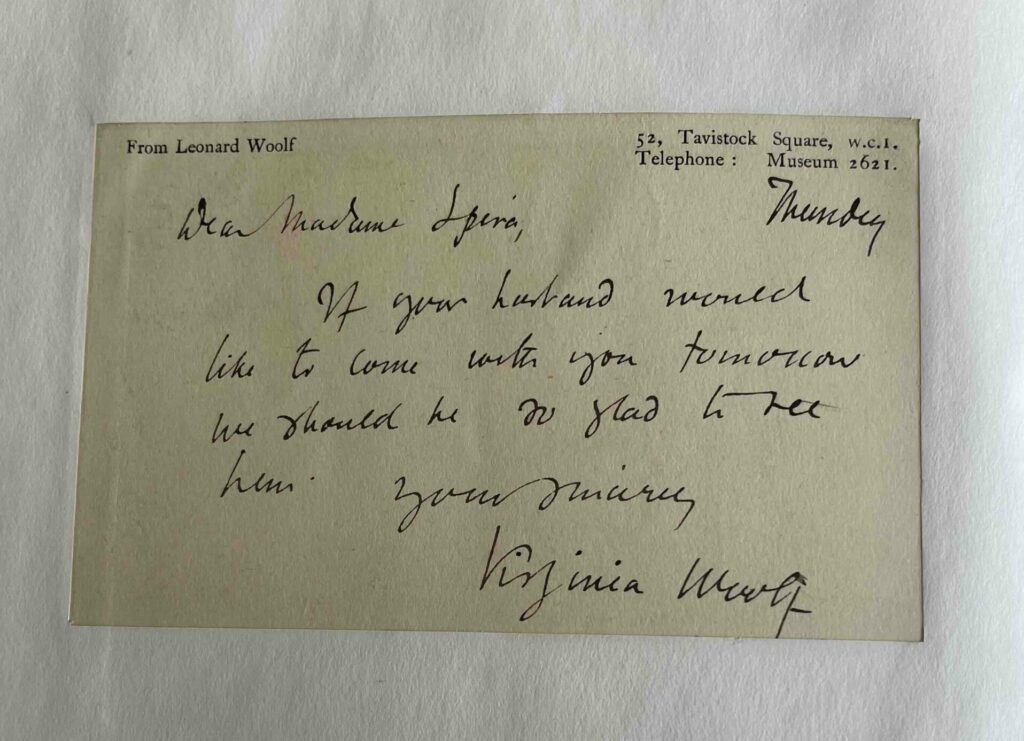 From Leonard Woolf
52, Tavistock Square, W.C.1.
Telephone : Museum 2621.
Thursday
Dear Madame Spira,
If your husband would
like to come with you tomorrow
we should be so glad to see
him.
Yours sincerely
Virginia Woolf